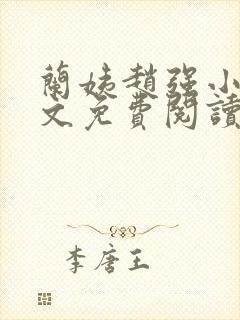 蘭姨趙强小
文免費閱讀
李唐王